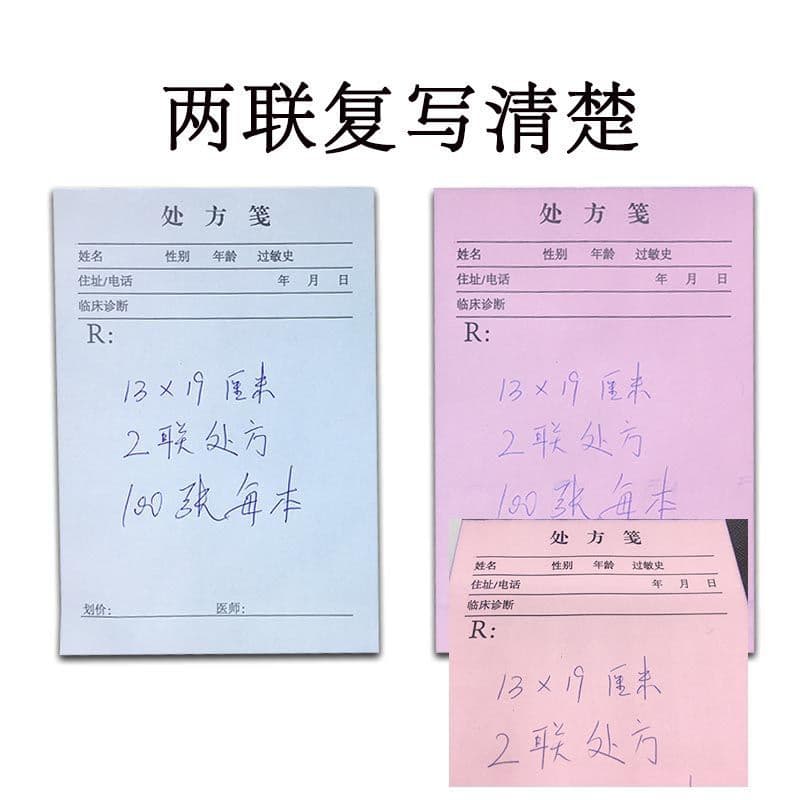 两联复写清楚
处方笺
姓名 性别 年龄 过敏史
住址/电话 年 月 日
临床诊断
R:
13×19厘米
2联处方
100张每本
划价: 医师:
处方笺
姓名 性别 年龄 过敏史
住址/电话 年 月 日
临床诊断
R:
13×19厘米
2联处方
100张每本
处方笺
姓名 性别 年龄 过敏史
住址/电话 年 月 日
临床诊断
R:
13×19厘米
2联处方